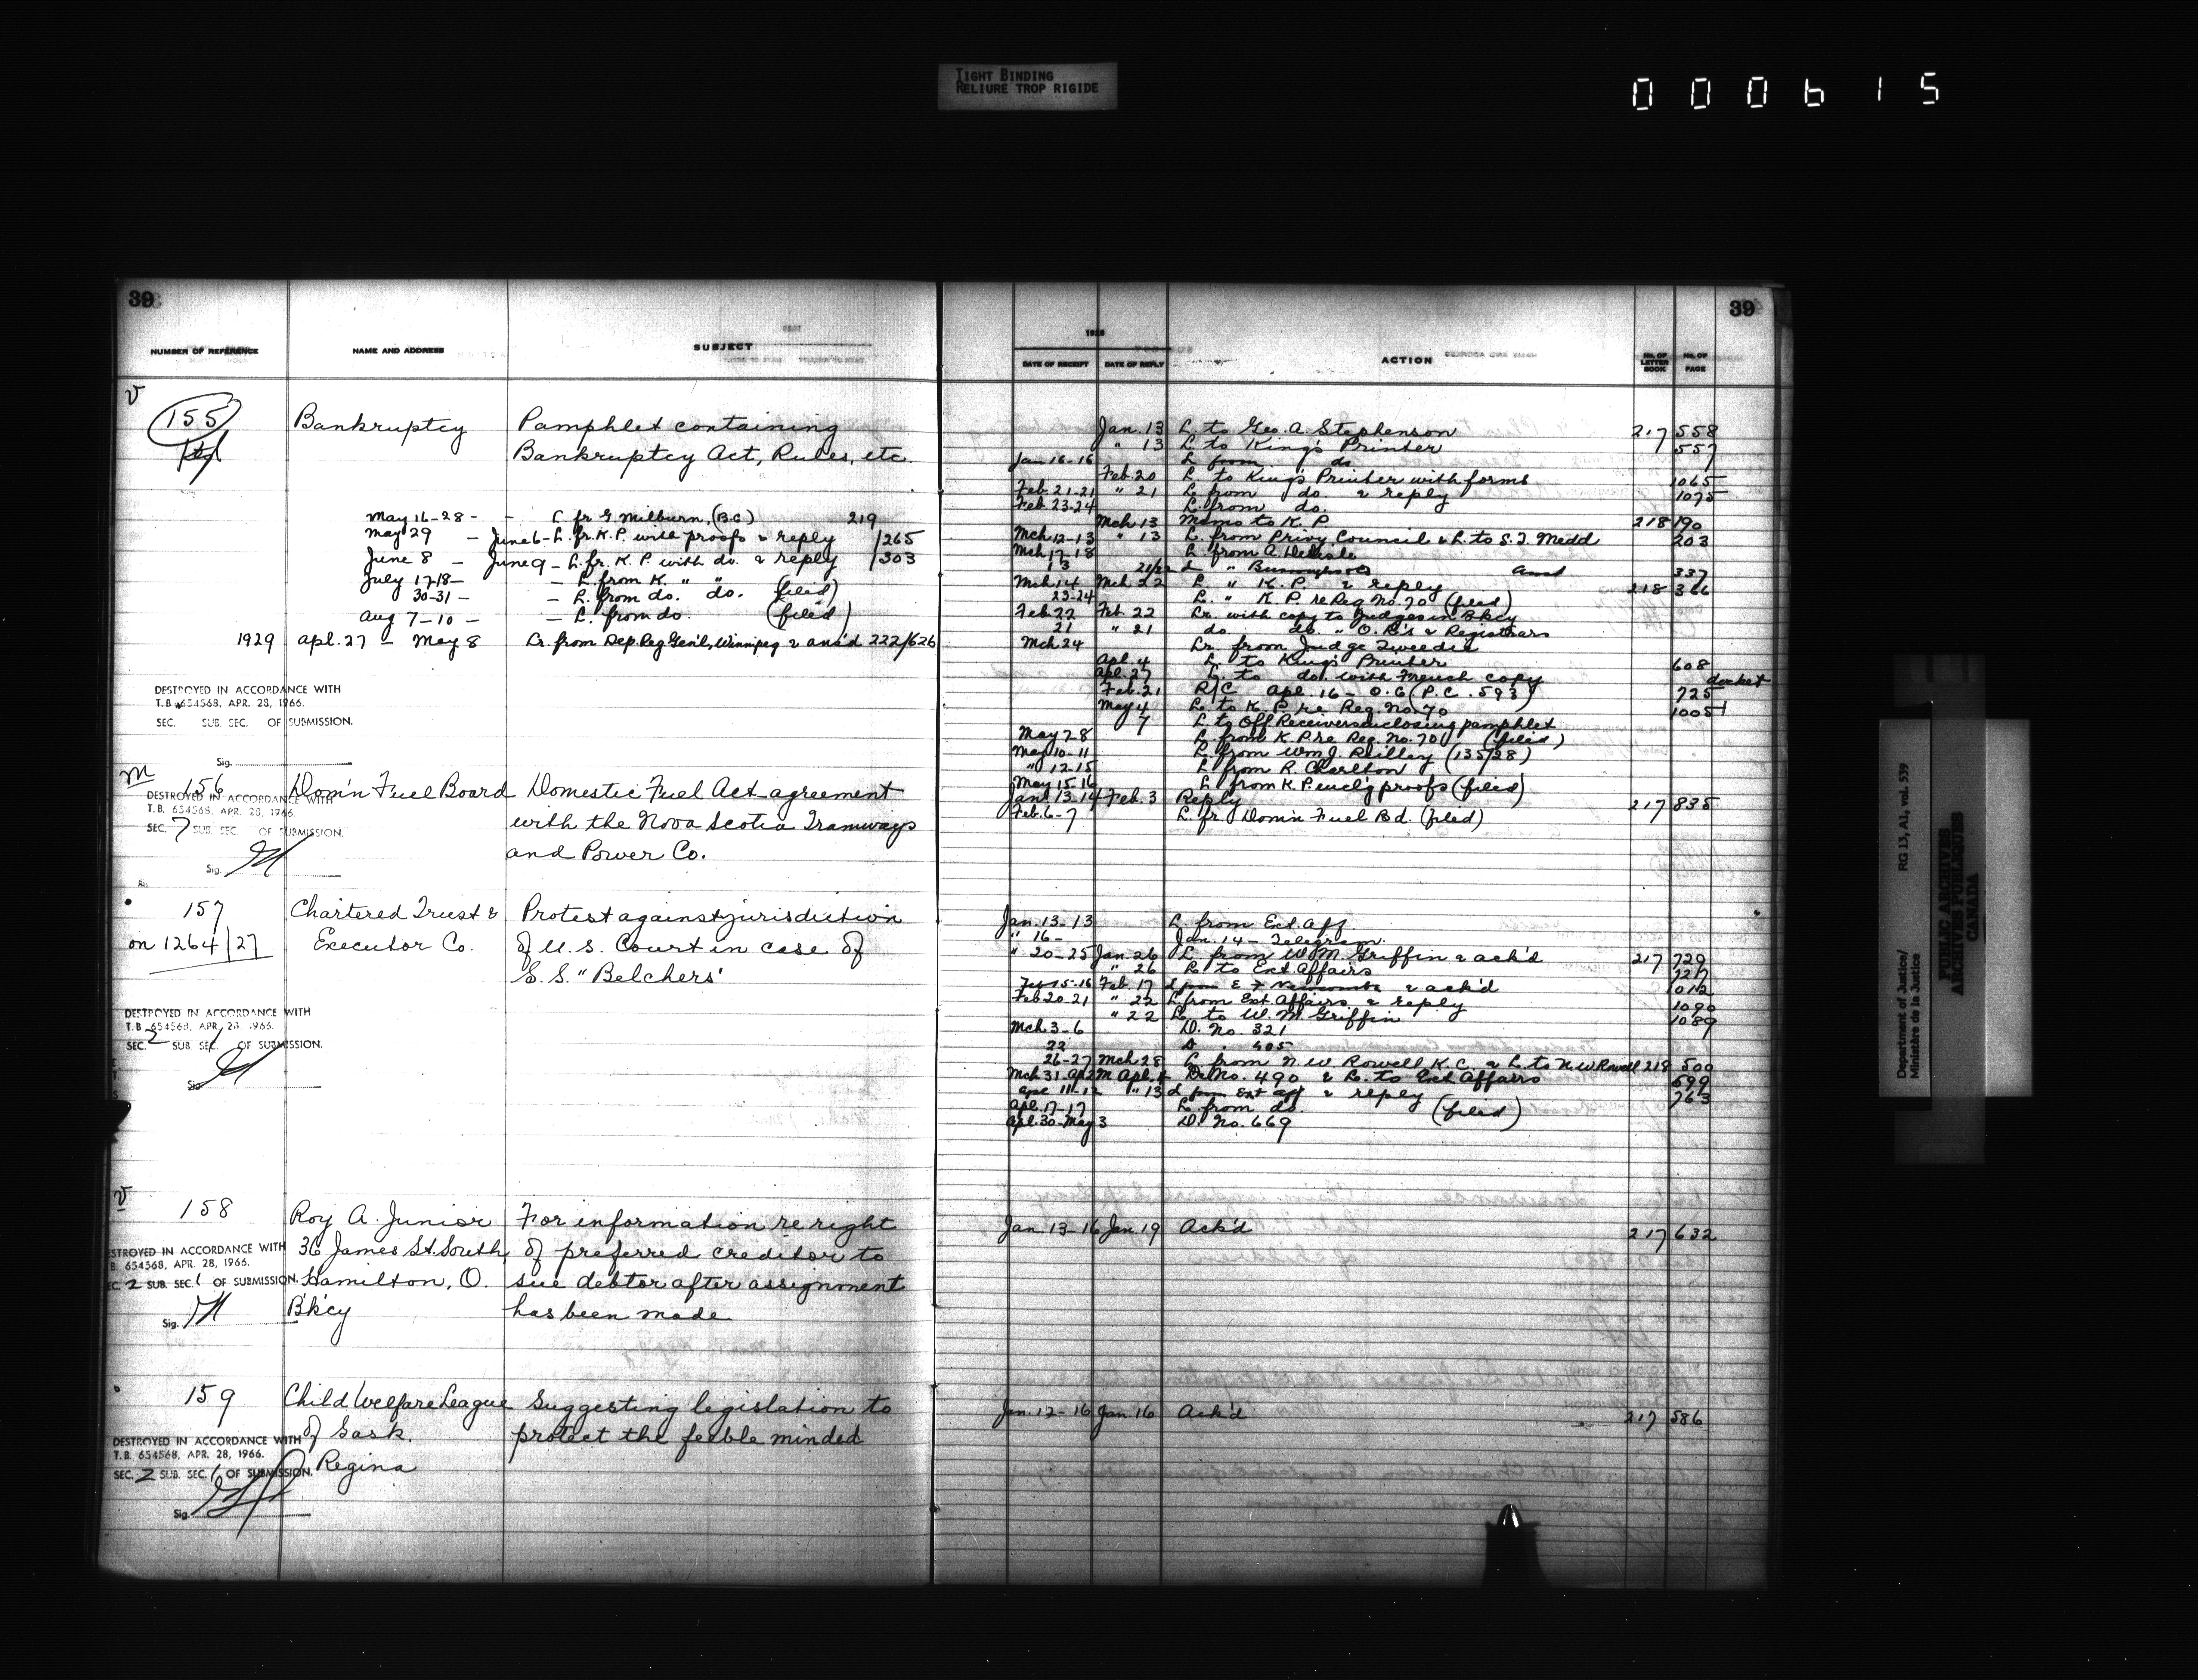 TIGHT BINDING
RELIURE TROP RIGIDE
000615
39
39
NUMBER OF REFERENCE NAME AND ADDRESS SUBJECT
1928
DATE OF RECEIPT DATE OF REPLY ACTION No. OF LETTER BOOK No. OF PAGE
V
155 Bankruptcy Pamphlet containing
Bankruptcy Act, Rules, etc.
May 16-28 - - L. fr G. Milburn, (B.C) 219
May 29 - June 6 - L. fr. K.P. with proofs & reply /265
June 8 - June 9 - L. fr. K.P. with do. & reply /303
July 17-18 - - L. from K. " " (filed)
30-31 - - L. from do. do. (filed)
Aug 7-10 - - L. from do. (filed)
1929 Apl. 27 - May 8 Lr. from Dep. Reg Gen'l, Winnipeg & ans'd 222/626
DESTROYED IN ACCORDANCE WITH
T.B. 654568, APR. 28, 1966.
SEC. SUB. SEC. OF SUBMISSION.
Sig.
Jan. 13 L. to Geo. A. Stephenson 217 558
" 13 L. to King's Printer 557
Jan 16-16 L. from do
Feb. 20 L. to King's Printer with forms 1065
Feb. 21-21 " 21 L. from do. & reply 1075
Feb. 23-24 L. from do.
Mch. 13 Memo to K.P. 218 190
Mch. 12-13 " 13 L. from Privy Council & L. to S.J. Medd 203
Mch. 17-18 L. from A. Delisle
13 21/22 L " Burroughs & Co and 337
Mch. 14 Mch 22 L. " K.P. & reply 218 366
23-24 L. " K.P. re Reg. No. 70 (filed)
Feb. 22 Feb. 22 Lr. with copy to Judges in Bkcy
21 " 21 do. do. " O.R's & Registrars
Mch. 24 Lr. from Judge Tweedie
Apl. 4 L. to King's Printer 608
Apl. 27 L. to do. with French copy docket
Feb. 21 R/C Apl. 16 - O.C (P.C. 593) 725
May 4 L. to K.P. re Reg. No. 70 1005
7 L. to Off Receivers enclosing pamphlet
May 28 L. from K.P. re Reg. No. 70 (filed)
May 10-11 L. from Wm J. Reilley (135/28)
" 12-15 L. from R. Charlton
May 15-16 L. from K.P. encl'g proofs (filed)
M
156 Dom'n Fuel Board Domestic Fuel Act - agreement
with the Nova Scotia Tramways
and Power Co.
DESTROYED IN ACCORDANCE WITH
T.B. 654568, APR. 28, 1966.
SEC. 7 SUB. SEC. OF SUBMISSION.
Sig.
Jan. 13-14 Feb. 3 Reply 217 835
Feb. 6-7 L. fr. Dom'n Fuel Bd. (filed)
157 Chartered Trust & Protest against jurisdiction
on 1264/27 Executor Co. of U.S. Court in case of
S.S. "Belchers"
DESTROYED IN ACCORDANCE WITH
T.B. 654568, APR. 28, 1966.
SEC. 2 SUB. SEC. 1 OF SUBMISSION.
Sig
Jan. 13-13 L. from Ext. Aff.
" 16 - Jan. 14 - Telegram.
" 20-25 Jan. 26 L. from W.M. Griffin & ack'd 217 729
" 26 L. to Ext Affairs 727
Feb 15-16 Feb. 17 L from E F Newcombe & ack'd 1012
Feb 20-21 " 22 L. from Ext Affairs & reply 1090
" 22 L. to W.M. Griffin 1089
Mch. 3-6 D. No. 321
22 D. . 405
26-27 Mch. 28 L. from N.W. Rowell K.C. & L. to N.W Rowell 218 500
Mch. 31 - Ap 2 Apl. 4 D. No. 490 & L. to Ext Affairs 699
Apl 11-12 " 13 L from Ext aff & reply 763
Apl. 17-17 L. from do. (filed)
Apl. 30-May 3 D. No. 669
V
158 Roy A. Junior For information re right
36 James St. South, of preferred creditor to
Hamilton, O. sue debtor after assignment
B'k'cy has been made
DESTROYED IN ACCORDANCE WITH
T.B. 654568, APR. 28, 1966.
SEC. 2 SUB. SEC. 1 OF SUBMISSION.
Sig.
Jan. 13-16 Jan. 19 Ack'd 217 632
159 Child Welfare League Suggesting legislation to
of Sask. protect the feeble minded
Regina
DESTROYED IN ACCORDANCE WITH
T.B. 654568, APR. 28, 1966.
SEC. 2 SUB. SEC. 1 OF SUBMISSION.
Sig.
Jan. 12-16 Jan. 16 Ack'd 217 586
Department of Justice/ RG 13, A1, vol. 539
Ministère de la Justice
PUBLIC ARCHIVES
ARCHIVES PUBLIQUES
CANADA